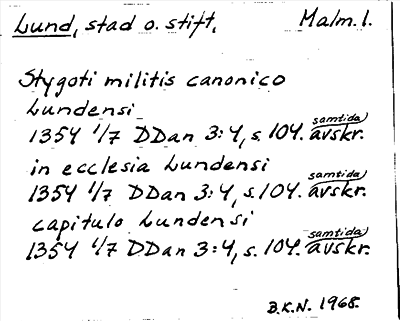 Lund, stad o. stift. Malm. l.
Stygoti militis canonico
Lundensi
1354 1/7 DDan 3:4, s. 104. samtida avskr.
in ecclesia Lundensi
1354 1/7 DDan 3:4, s. 104. samtida avskr.
capitulo Lundensi
1354 1/7 DDan 3:4, s. 104. samtida avskr.
B.K.N. 1968.